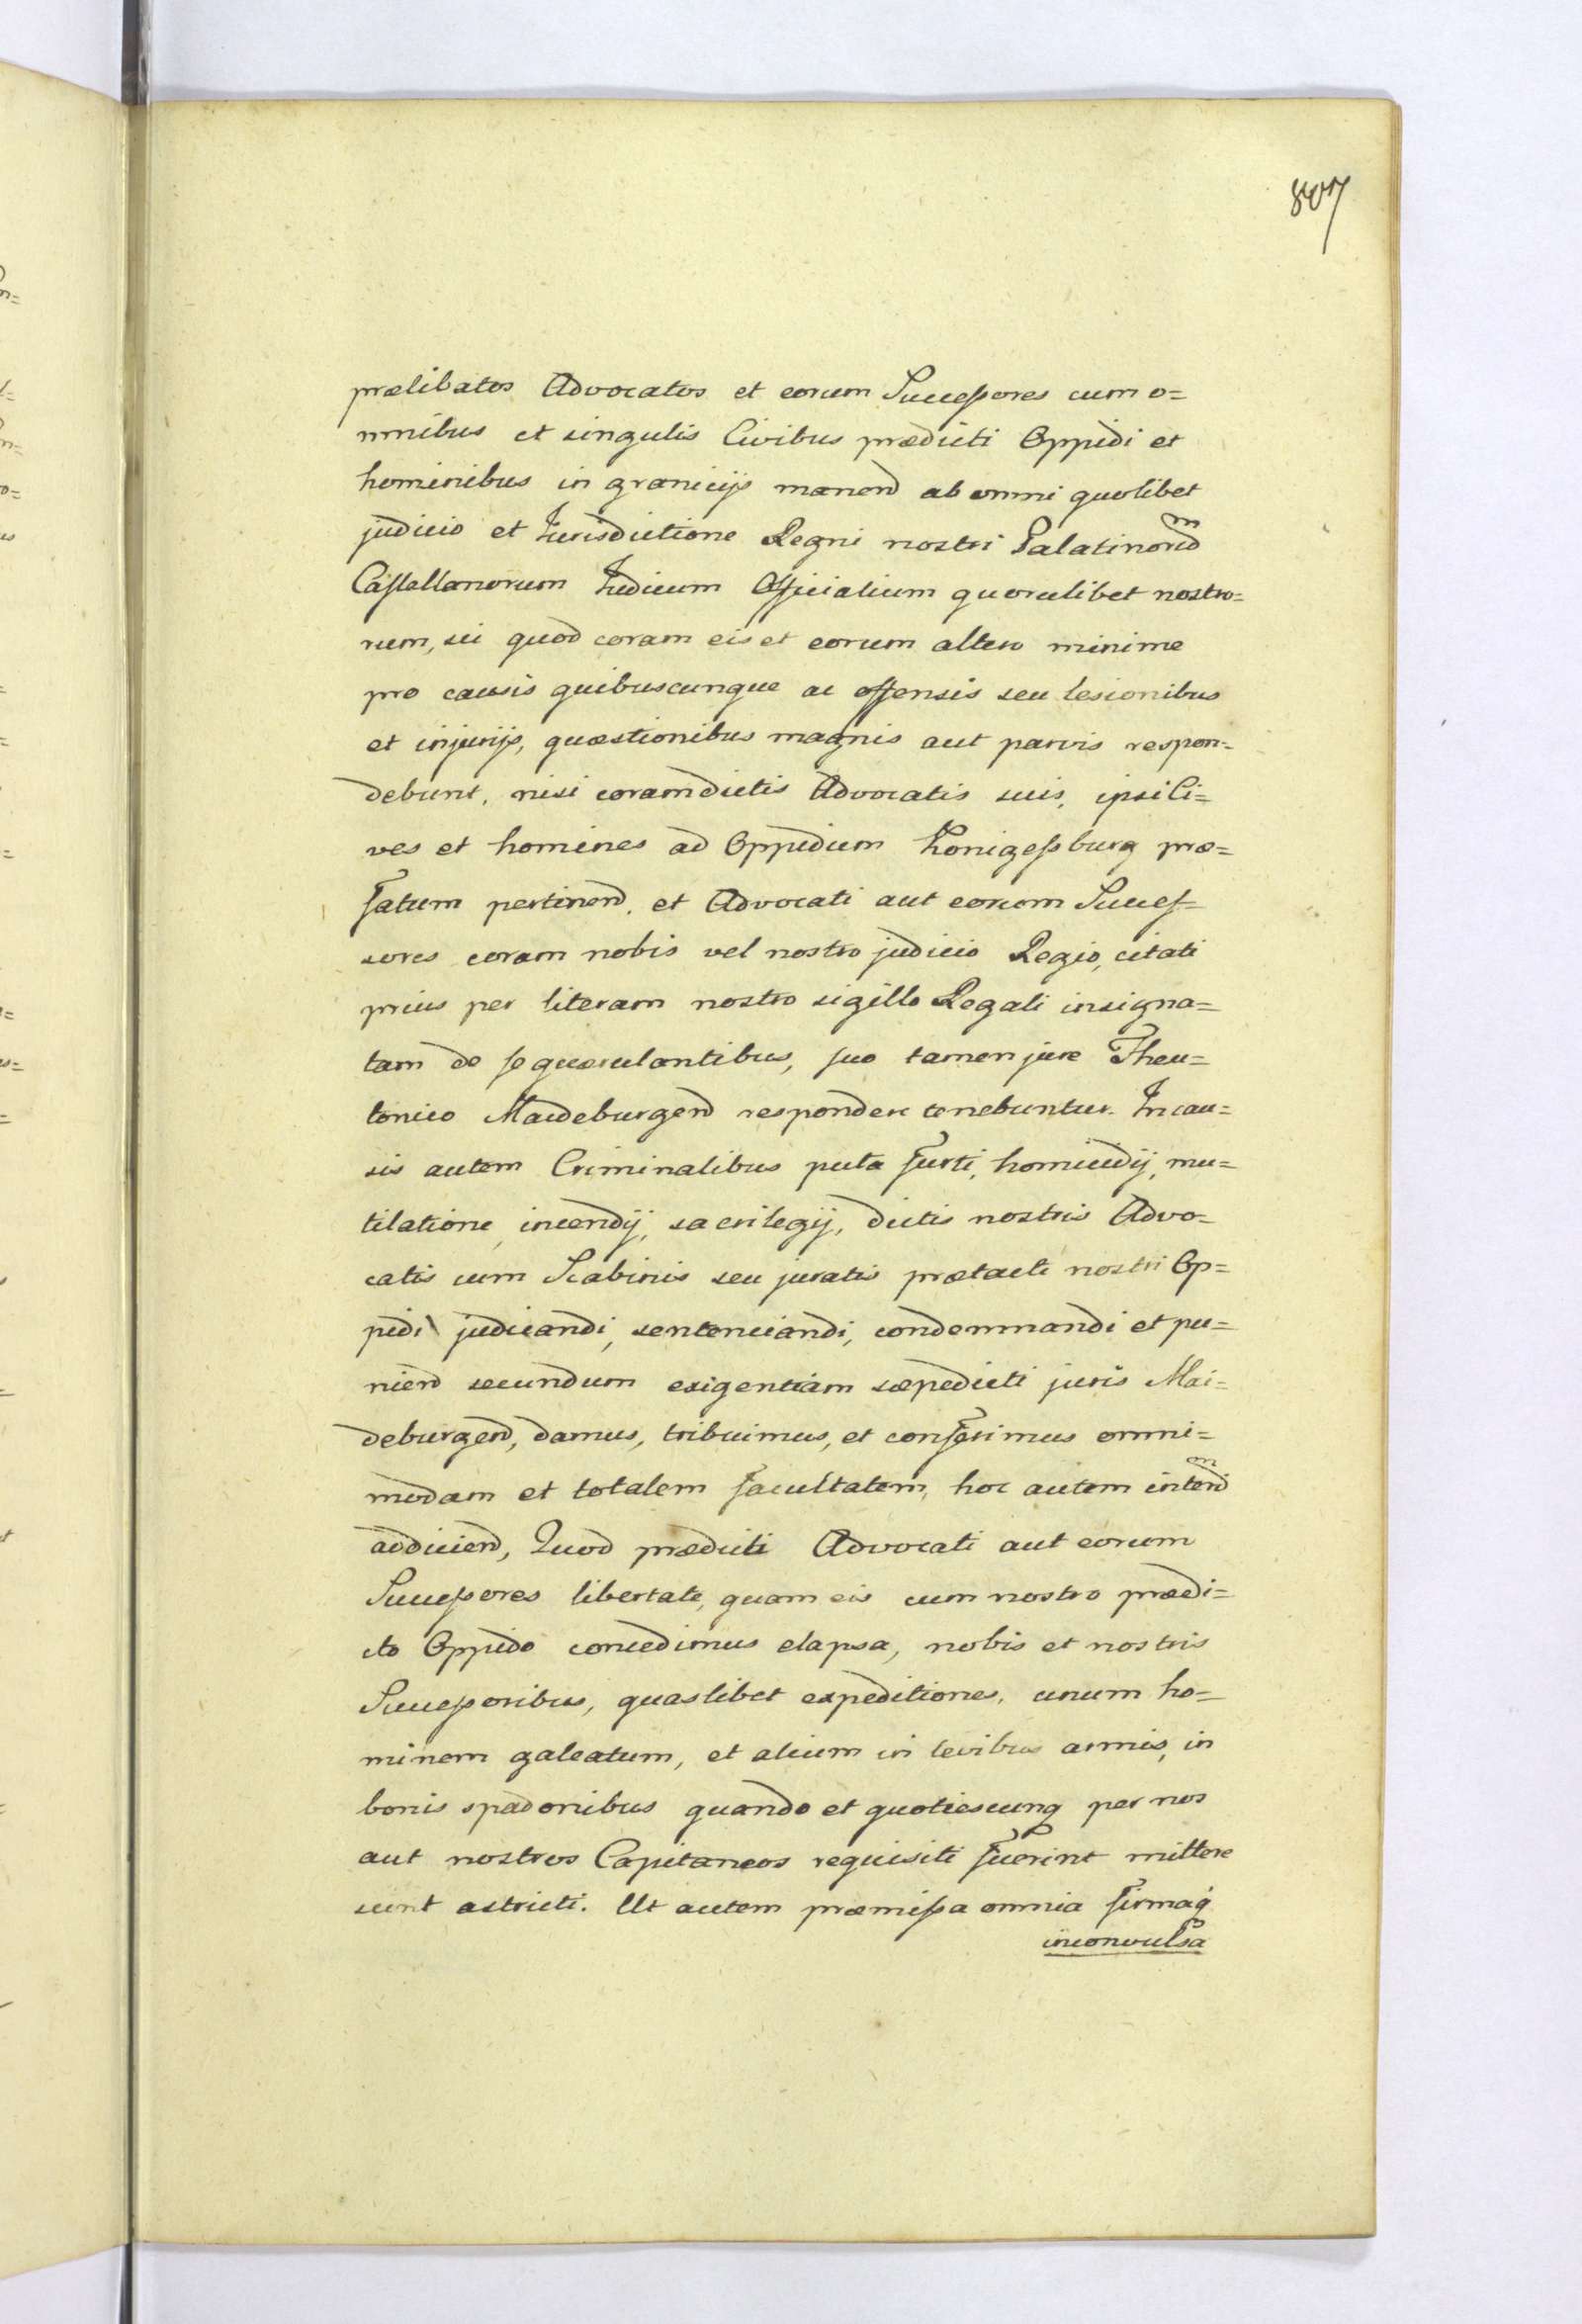 807
prælibatos Advocatos et eorum Successores cum o=
mnibus et singulis Civibus prædicti Oppidi et
hominibus in granicijs manend ab omni quolibet
judicio et Jurisdictione Regni nostri Palatinord
Castellanorum Judicum Officialium quorulibet nostro=
rum, sic quod coram eis et eorum altero minime
pro causis quibuscunque ac offensis seu lesionibus
et injurijs, quæstionibus magnis aut parvis respon=
debunt, nisi coram dictis Advocatis suis, ipsi Ci=
ves et homines ad Oppidum Konigessburg præ=
fatum pertinend. et Advocati aut eorum Succes=
sores coram nobis vel nostro judicio Regio, citati
prius per literam nostro sigillo Regali insigna=
tam de se querulantibus, suo tamen jure Theu=
tonico Maideburgend respondere tenebuntur. In cau=
sis autem Criminalibus puta furti, homicidij, mu=
tilatione, incendij, sacrilegij, dictis nostris Advo=
catis cum Scabinis seu juratis prætacti nostri Op=
pidi judicandi, sentenciandi, condemnandi et pu=
niend secundum exigentiam sæpedicti juris Mai=
deburgend, damus, tribuimus, et conferimus omni=
modam et totalem facultatem, hoc autem interd
addiciend, Quod prædicti Advocati aut eorum
Successores libertate, quam eis cum nostro prædi=
cto Oppido concedimus elapsa, nobis et nostris
Successoribus, quaslibet expeditiones, unum ho=
minem galeatum, et alium in levibus armis, in
bonis spadonibus quando et quotiescunq per nos
aut nostros Capitaneos requisiti fuerint mittere
sunt astricti. Ut autem præmissa omnia firmaq
inconvulsa